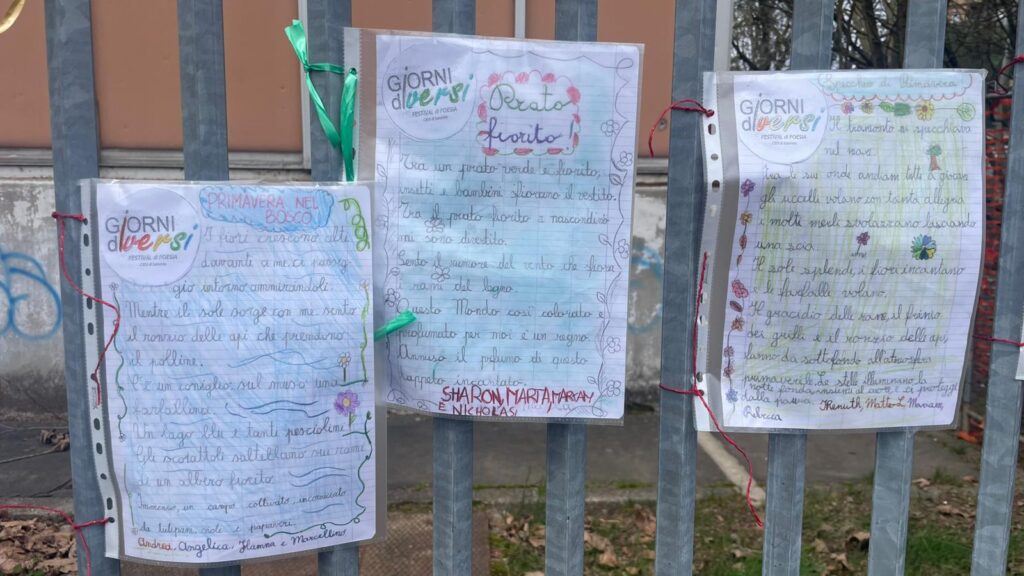 GiORNi
diversi
FESTIVAL di POESIA
PRIMAVERA NEL
BOSCO
I fiori crescono alti
davanti a me.Ci passeg-
gio intorno ammirandoli.
Mentre il sole sorge con me sento
il ronzio delle api che prendono
il polline.
C'è un coniglio sul muso una
farfallina.
Un lago blu e tanti pesciolini
Gli scoiattoli saltellano sui rami
di un albero fiorito.
Immenso un campo coltivato, incorniciato
da tulipani, viole e papaveri.
Andrea, Angelica, e Marcellino
GiORNi
diversi
FESTIVAL di POESIA
Prato
fiorito!
Tra un prato verde e fiorito,
insetti e bambini sfiorano il vestito.
Tra il prato fiorito a nascondino
mi sono divertito.
Sento il rumore del vento che sfiora
i rami del legno.
Questo Mondo così colorato e
profumato per me è un regno.
Annuso il profumo di questo
tappeto incantato.
SHARON, MARTA, MARYAM
E NICHOLAS
GiORNi
diversi
FESTIVAL di POESIA
Specchio di Primavera
Il tramonto si specchiava
nel mare.
Tra le sue onde andiam tutti a giocar
gli uccelli volano con tanta allegria
i molti merli svolazzano lasciando
una scia.
Il sole splende, i fiori incantano
le farfalle volano.
Il gracidio delle rane, il frinio
dei grilli e il ronzio delle api,
fanno da sottofondo all'atmosfera
primaverile. Le stelle illuminano la
notte fonda, insinua il cuore e ci protegge
dalla paura. Thenuth, Matteo L, Mariam,
Rebecca